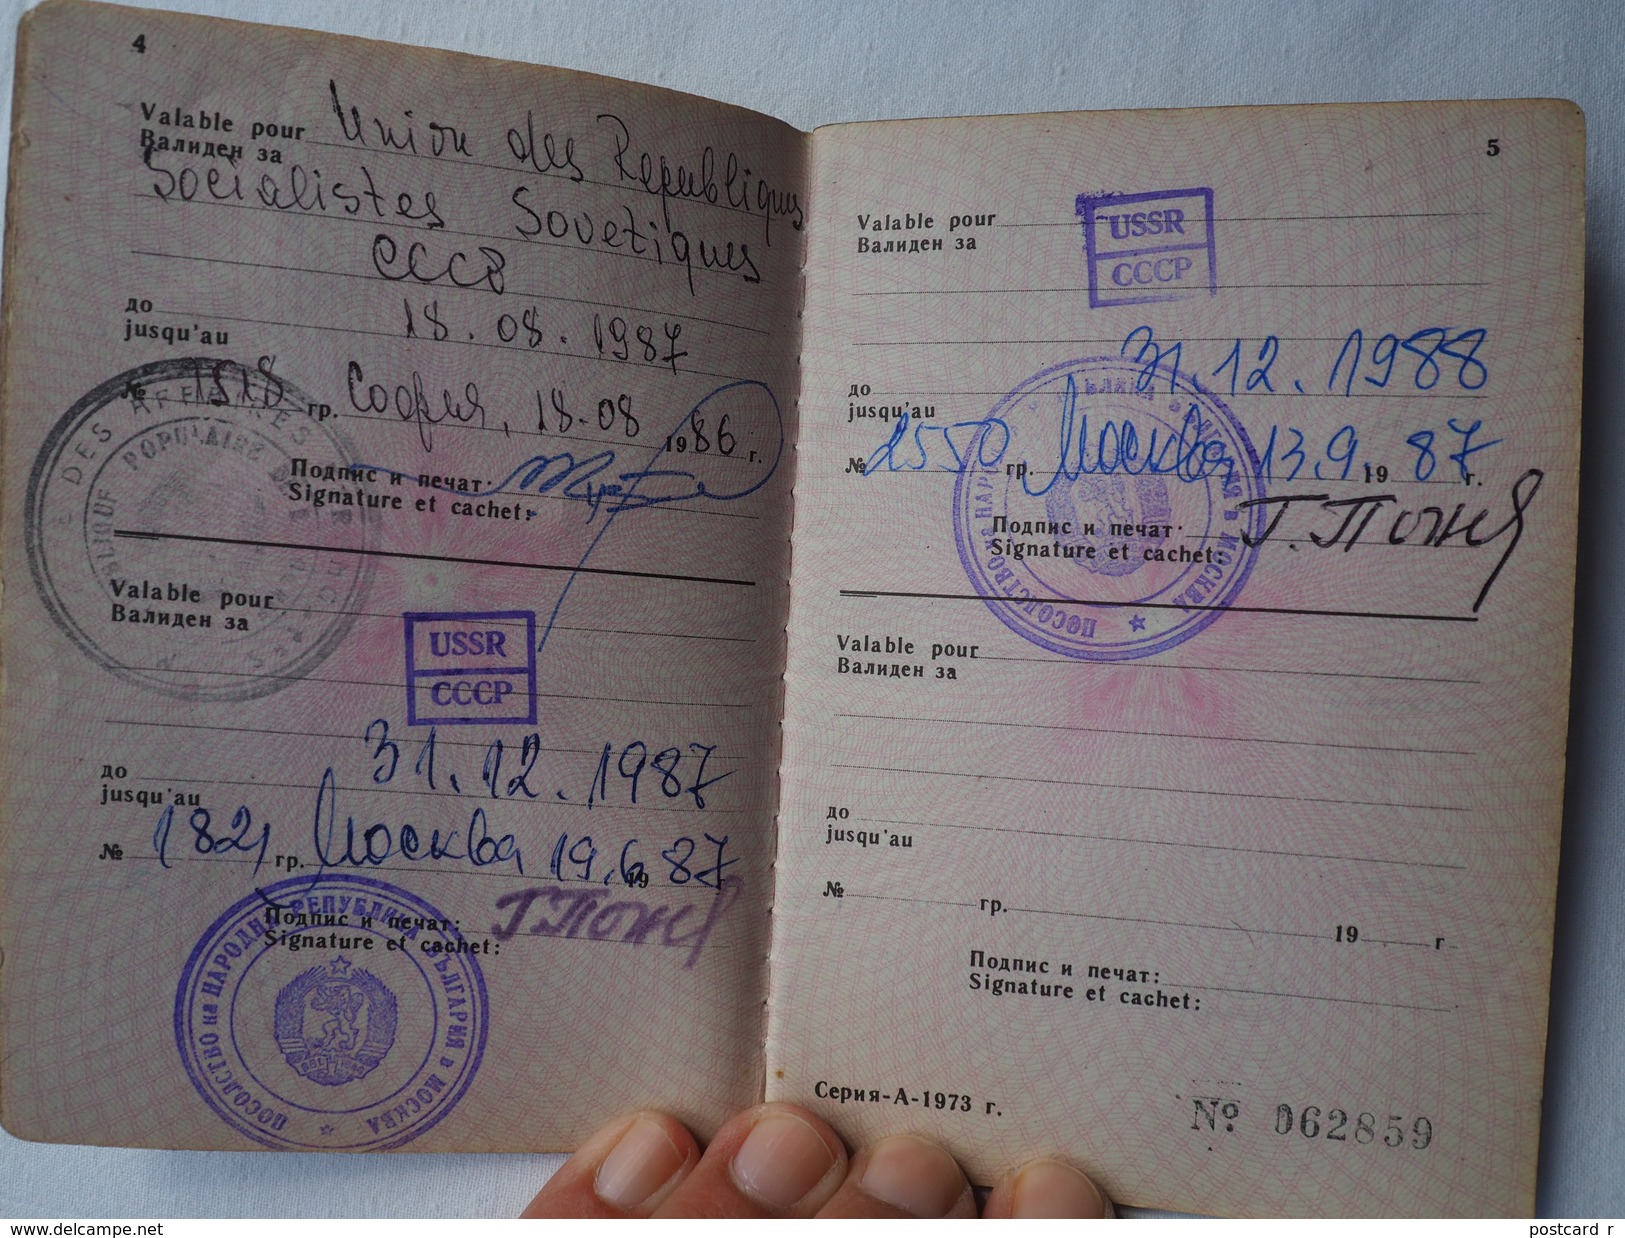 4
Valable pour Union des Republiques
Валиден за
Socialistes Sovetiques
СССР
до
jusqu'au 18.08.1987
№ 1518 гр. София, 18.08 1986 г.
Подпис и печат:
Signature et cachet:
DES AFFAIRES
POPULAIRE
Valable pour
Валиден за
USSR
СССР
до
jusqu'au 31.12.1987
№ 1821 гр. Москва 19.6.1987
Подпис и печат:
Signature et cachet:
ПОСОЛСТВО на НАРОДНА РЕПУБЛИКА БЪЛГАРИЯ в МОСКВА
5
Valable pour
Валиден за
USSR
СССР
до
jusqu'au 31.12.1988
№ 2550 гр. Москва 13.9.1987 г.
Подпис и печат:
Signature et cachet:
ПОСОЛСТВО на НАРОДНА РЕПУБЛИКА БЪЛГАРИЯ в МОСКВА
Valable pour
Валиден за
до
jusqu'au
№ гр. 19 г
Подпис и печат:
Signature et cachet:
Серия-А-1973 г.
№ 062859
www.delcampe.net
postcard_r